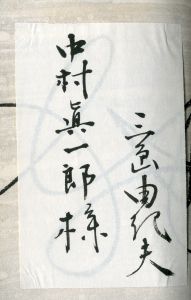 中村眞一郎様
三島由紀夫